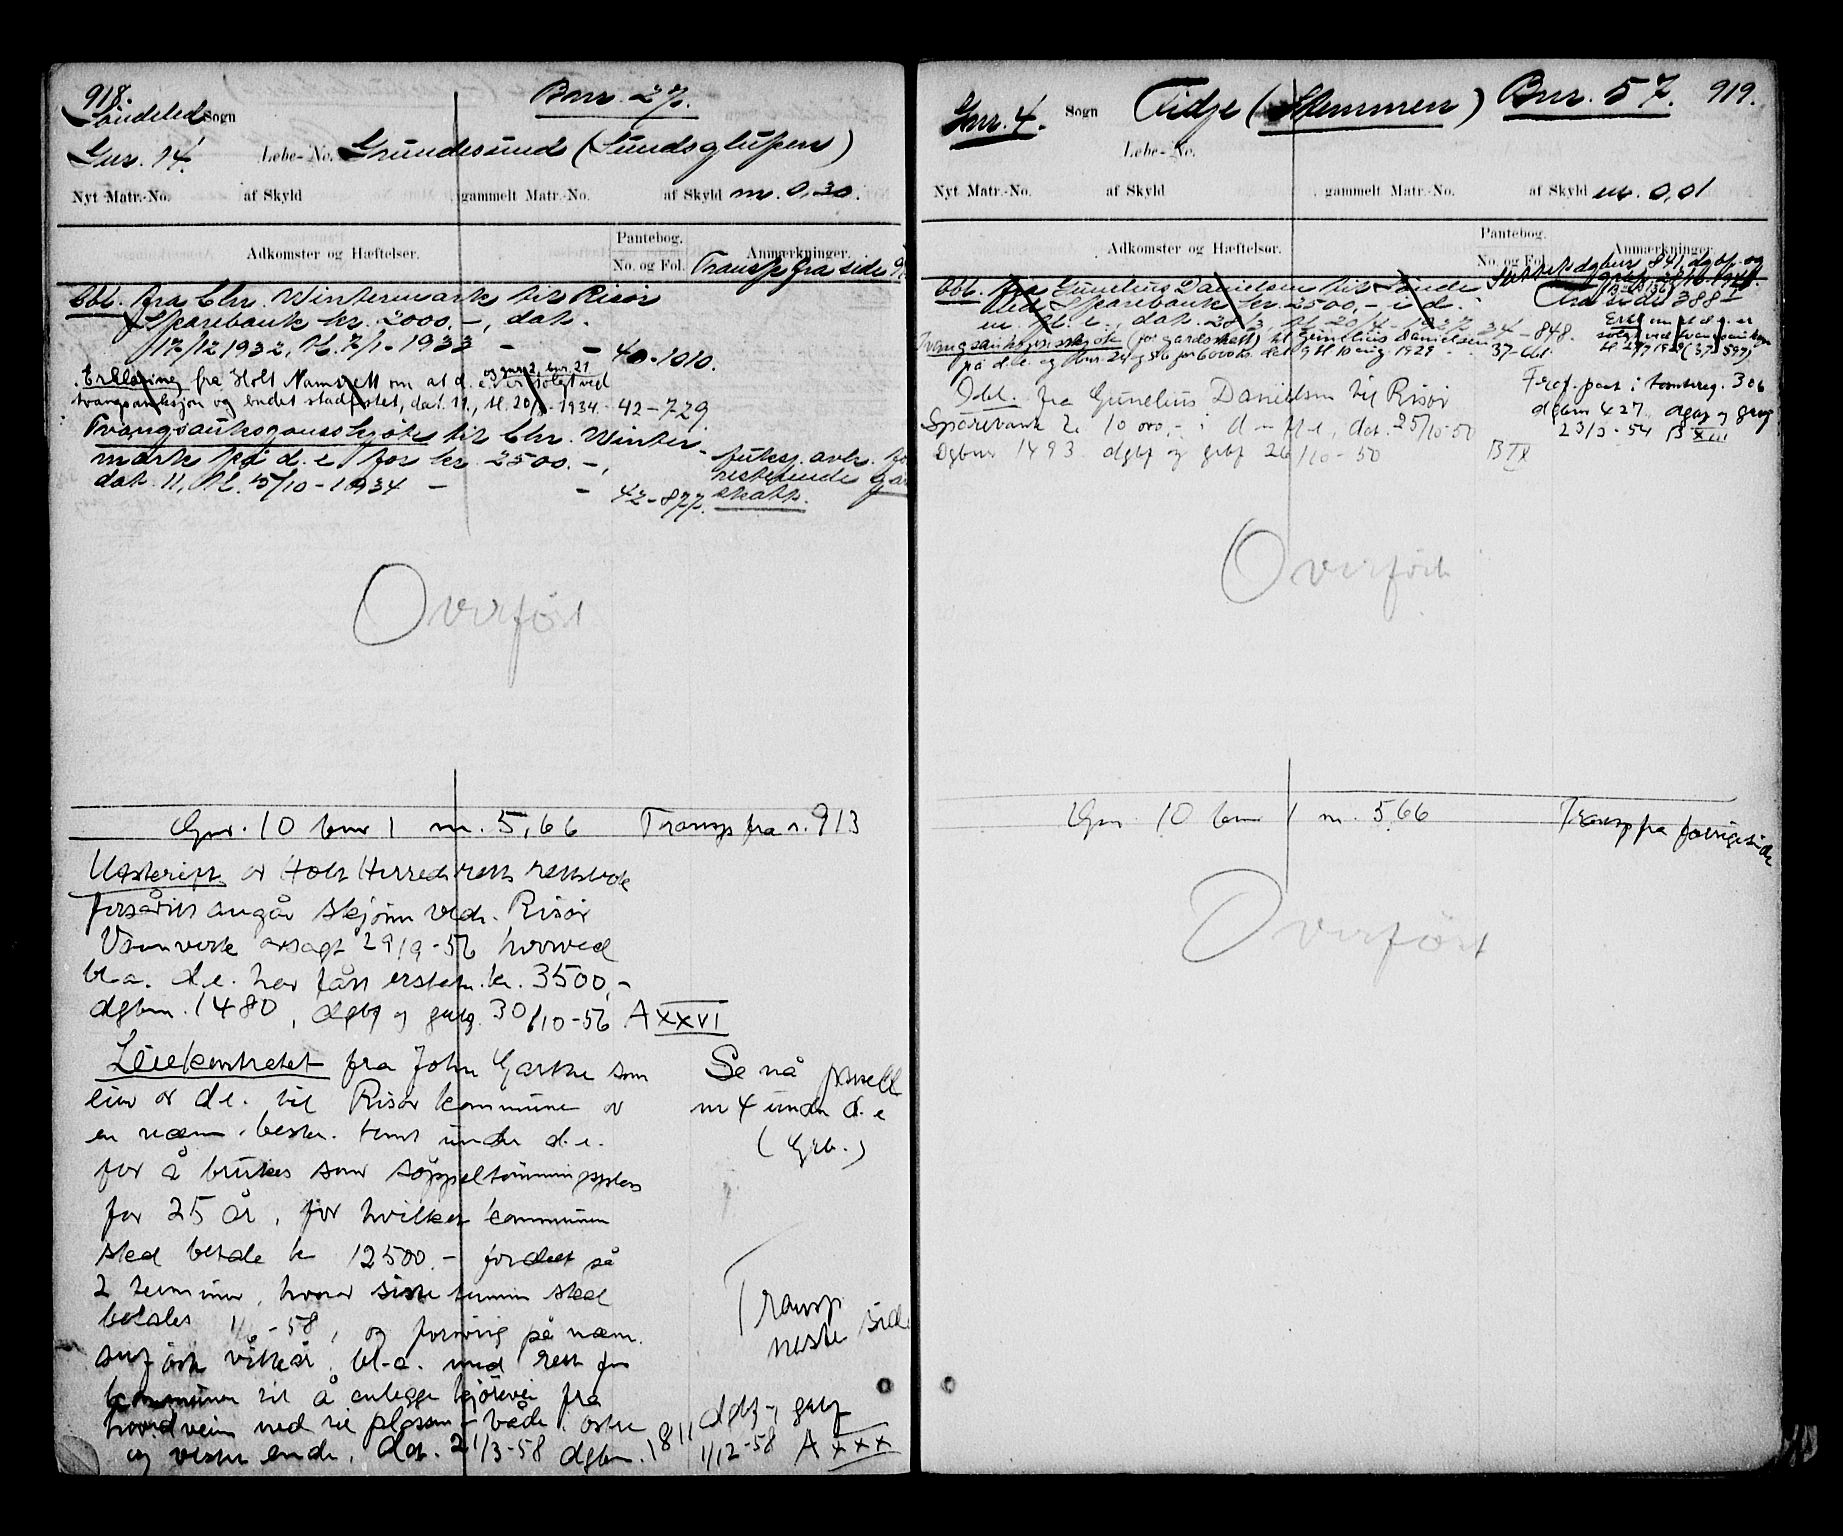 918.
Söndeled Sogn
Bnr. 27.
Gnr. 14.
Løbe-No. Grundesund (Sundsglupen)
Nyt Matr.-No. af Skyld gammelt Matr.-No. af Skyld m. 0,30.
Adkomster og Hæftelser.
Pantebog. No. og Fol.
Anmærkninger.
Transp. fra side
Obl. fra Chr. Wintermark til Risör
Sparebank kr. 2000.-, dat.
17/12 1932, tl. 7/1-1933 - - 40-1010.
og gnr. 2, bnr. 21
Erklæring fra Holt Namsrett om at d. e. er solgt ved
tvangsauksjon og budet stadfestet, dat. 11., tl. 20/ -1934. 42-729.
Tvangsauksjonsskjöte til Chr. Winter-
mark på d. e. for kr. 2500.-,
dat. 11, tl. 5/10-1934 - - 42-877.
restende
skatt.
Overfört
Gnr. 10 bnr 1 m. 5,66 Transp fra s. 913
Utskrift av Holt Herredsretts rettsbok
forsåvidt angår skjönn vedr. Risör
Vannverk avsagt 29/9-56 hvorved
bl.a. d.e. har fått erstatn. kr. 3500,-
dgbnr. 1480, dgbf og grbf. 30/10-56 A XXVI
Leiekontrakt fra John Garthe som
eier av d.e. til Risör kommune av
en nærm. beskr. tomt under d.e.
for å brukes som söppeltömmingsplass
for 25 år, for hvilket kommunen
skal betale kr 12500.- fordelt på
2 terminer, hvorav siste termin skal
betales 1/6-58, og forövrig på nærm.
anförte vilkår, bl.a. med rett for
kommunen til å anlegge kjörevei fra
hovedveien ned til plassen både i östre
og vestre ende, dat. 21/3-58 dgbnr. 1811 dgbf og grbf
1/12-58 A XXX
Se nå
nr 4 under d.e
(Grb.)
Transp
neste side
Gnr. 4. Sogn Tidje (Stemmen) Bnr. 57. 919.
Løbe-No.
Nyt Matr.-No. af Skyld gammelt Matr.-No. af Skyld m. 0,01
Adkomster og Hæftelser.
Pantebog. No. og Fol.
Anmærkninger.
Slettet dgbnr 841, dgbf. og
fra side 388
Obl. fra Gunelius Danielsen til Sönde-
led Sparebank kr. 2500,- i d.
e. m. fl. e., dat. 28/3, tl. 20/4-1927 34-848.
Tvangsauksjonsskjöte (for gardskatt) til Gunelius Danielsen
på d.e. og bnr. 24 og 56 for 600 kr. dat. 9 tl. 10 aug. 1929 - 37-661.
Erkl. om at d.e. er
solgt ved tvangsauksjon
tl 27/7 1929 (37-597)
Obl. fra Gunelius Danielsen til Risör
Sparebank kr 10 000,- i d.e. m fl. e., dat. 25/10-50
Dgbnr 1493. dgbf og grbf 26/10-50 B IX
Fraf. part i tomtereg. 306
dgbnr 427. dgbf og grbf
23/3-54 B XIII
Overfört
Gnr. 10 bnr 1 m. 5,66 Transp fra forrige side
Overfört